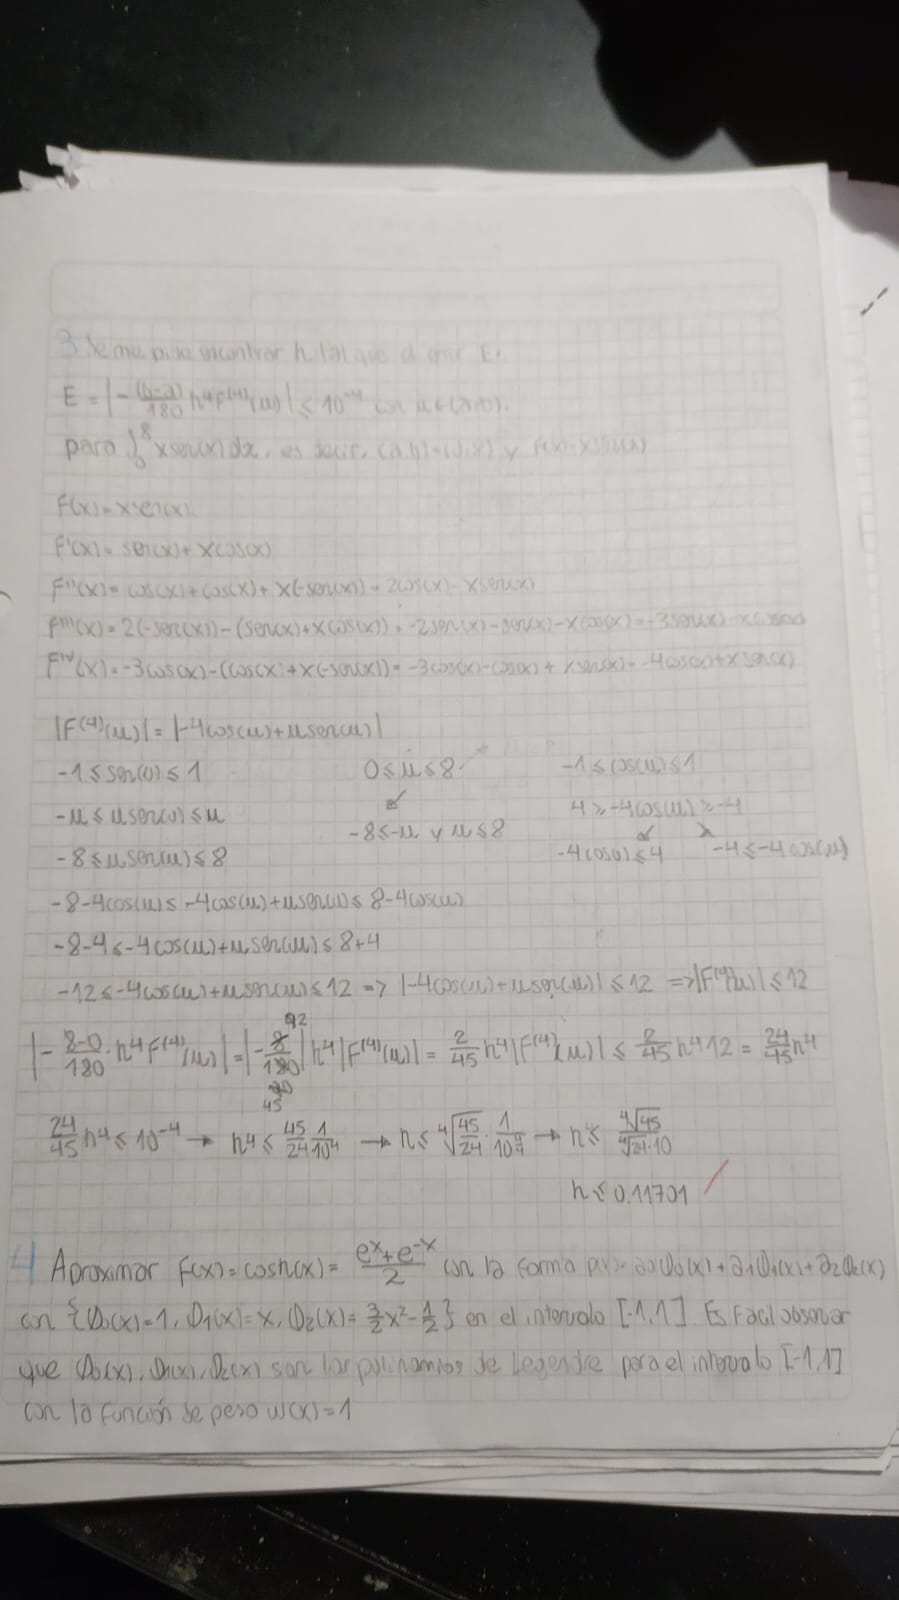 3 Se me pide encontrar h tal que el error E:
E = |-(b-a)/180 h⁴F⁽⁴⁾(μ)| ≤ 10⁻⁴ con μ∈(a,b).
para ∫₀⁸ xsen(x)dx, es decir, (a,b)=(0,8) y f(x)=xsen(x)
F(x)=xsen(x).
F'(x)= sen(x)+ xcos(x)
F''(x)= cos(x)+cos(x)+ x(-sen(x))= 2cos(x)-xsen(x)
F'''(x)= 2(-sen(x))-(sen(x)+xcos(x)) = -2sen(x)-sen(x)-xcos(x)=-3sen(x)-xcos(x)
Fᴵⱽ(x)=-3cos(x)-(cos(x)+x(-sen(x))= -3cos(x)-cos(x)+ xsen(x)= -4cos(x)+xsen(x)
|F⁽⁴⁾(μ)|= |-4cos(μ)+μsen(μ)|
-1≤sen(μ)≤1 0≤μ≤8 -1≤cos(μ)≤1
-μ≤μsen(μ)≤μ -8≤-μ y μ≤8 4≥-4cos(μ)≥-4
-8≤μsen(μ)≤8 -4cos(μ)≤4 -4≤-4cos(μ)
-8-4cos(μ)≤-4cos(μ)+μsen(μ)≤8-4cos(μ)
-8-4≤-4cos(μ)+μsen(μ)≤8+4
-12≤-4cos(μ)+μsen(μ)≤12 => |-4cos(μ)+μsen(μ)|≤12 =>|F⁽⁴⁾(μ)|≤12
|-8-0/180·h⁴F⁽⁴⁾(μ)|=|-8/180|h⁴|F⁽⁴⁾(μ)|= 2/45 h⁴|F⁽⁴⁾(μ)| ≤ 2/45 h⁴12 = 24/45 h⁴
24/45 h⁴≤10⁻⁴ → h⁴≤ 45/24 1/10⁴ → h≤ ⁴√45/24·1/10⁴ → h≤ ⁴√45/⁴√24·10
h≤0,11701
4 Aproximar F(x)=cosh(x)= eˣ+e⁻ˣ/2 con la forma p(x)=a₀Φ₀(x)+a₁Φ₁(x)+a₂Φ₂(x)
con {Φ₀(x)=1, Φ₁(x)=x, Φ₂(x)= 3/2x²-1/2} en el intervalo [-1,1] Es Facil observar
que Φ₀(x), Φ₁(x), Φ₂(x) son los polinomios de Legendre para el intervalo [-1,1]
con la función de peso w(x)=1